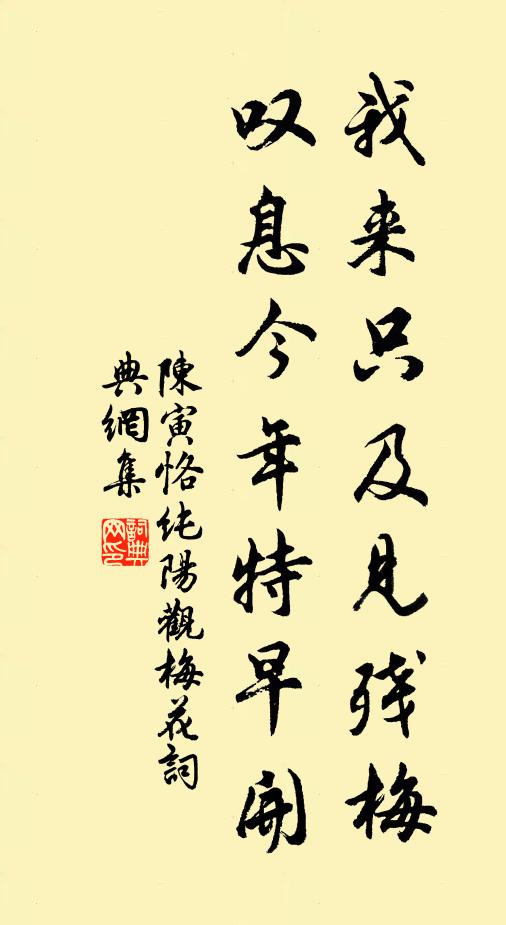 我来只及见残梅
叹息今年特早開
陳寅恪純陽觀梅花詞
典網集
詞典網印